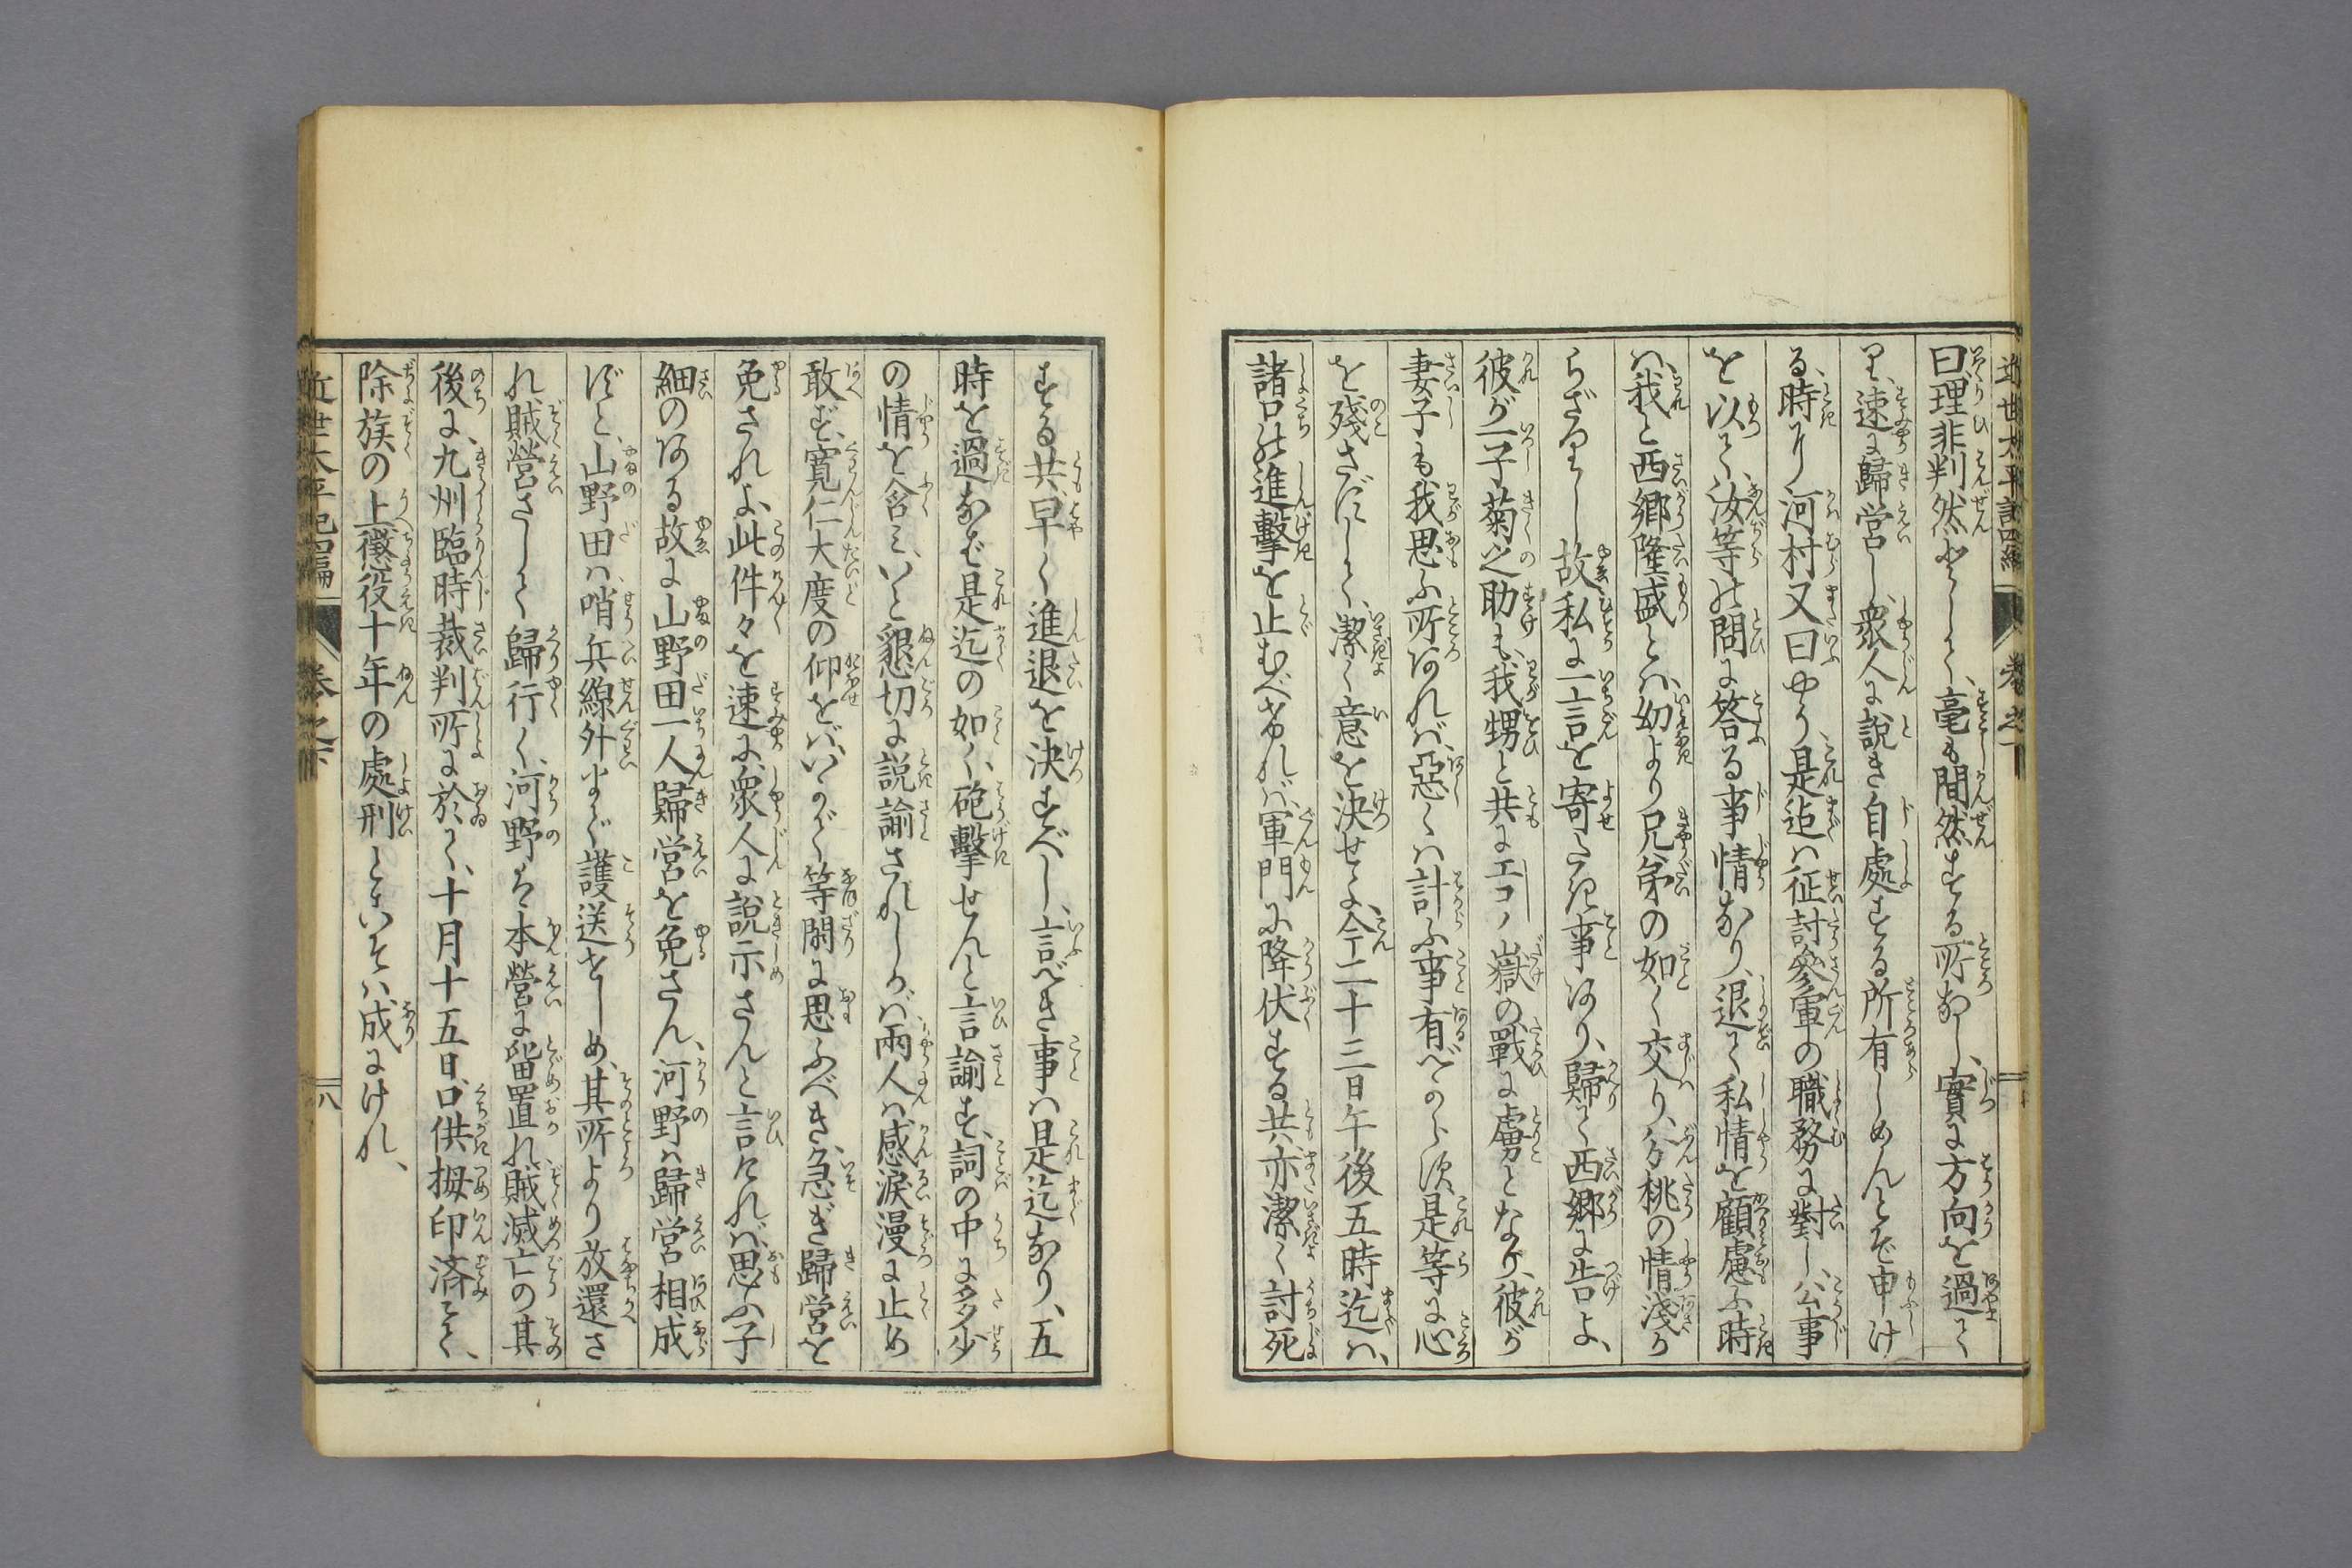 近世太平記四編 巻之下
曰理非判然として、毫も間然する所なし、實に方向を過て
り、速に歸営し、衆人に説き自處する所有しめんとぞ申け
る、時に河村又曰やう、是迄ハ征討參軍の職務に對し、公事
を以て、汝等の問に答る事情なり、退て私情を顧慮ふ時
ハ、我と西郷隆盛とハ、幼より兄弟の如く交り、分桃の情浅か
らざりし故、私に一言を寄せたき事あり、歸て西郷に告よ、
彼が一子菊之助も、我甥と共にエコノ嶽の戰に虜となり、彼が
妻子も我思ふ所あれバ、惡くハ計ふ事有べからず、是等に心
を殘さずして、潔く意を決せよ、今二十三日午後五時迄ハ、
諸口の進擊を止むべければ、軍門に降伏する共、亦潔く討死
する共、早く進退を決すべし、言べき事ハ是迄なり、五
時を過なば是迄の如く、砲擊せんと言諭す、詞の中に多少
の情を含ミ、いと懇切に説諭されしかバ、兩人ハ感涙漫に止め
敢ず、寛仁大度の仰をバ、いかで等閑に思ふべき、急ぎ歸営を
免されよ、此件々を速に、衆人に説示さんと言けれバ、思ふ子
細のある故に山野田一人歸営を免さん、河野ハ歸営相成
ずと、山野田ハ、哨兵線外まで護送せしめ、其所より放還さ
れ、賊營さして歸行く、河野を本營に留置れ、賊滅亡の其
後に、九州臨時裁判所に於て、十月十五日、口供拇印済て、
除族の上懲役十年の處刑とこそハ成にけれ、
近世太平記四編 巻之下 八